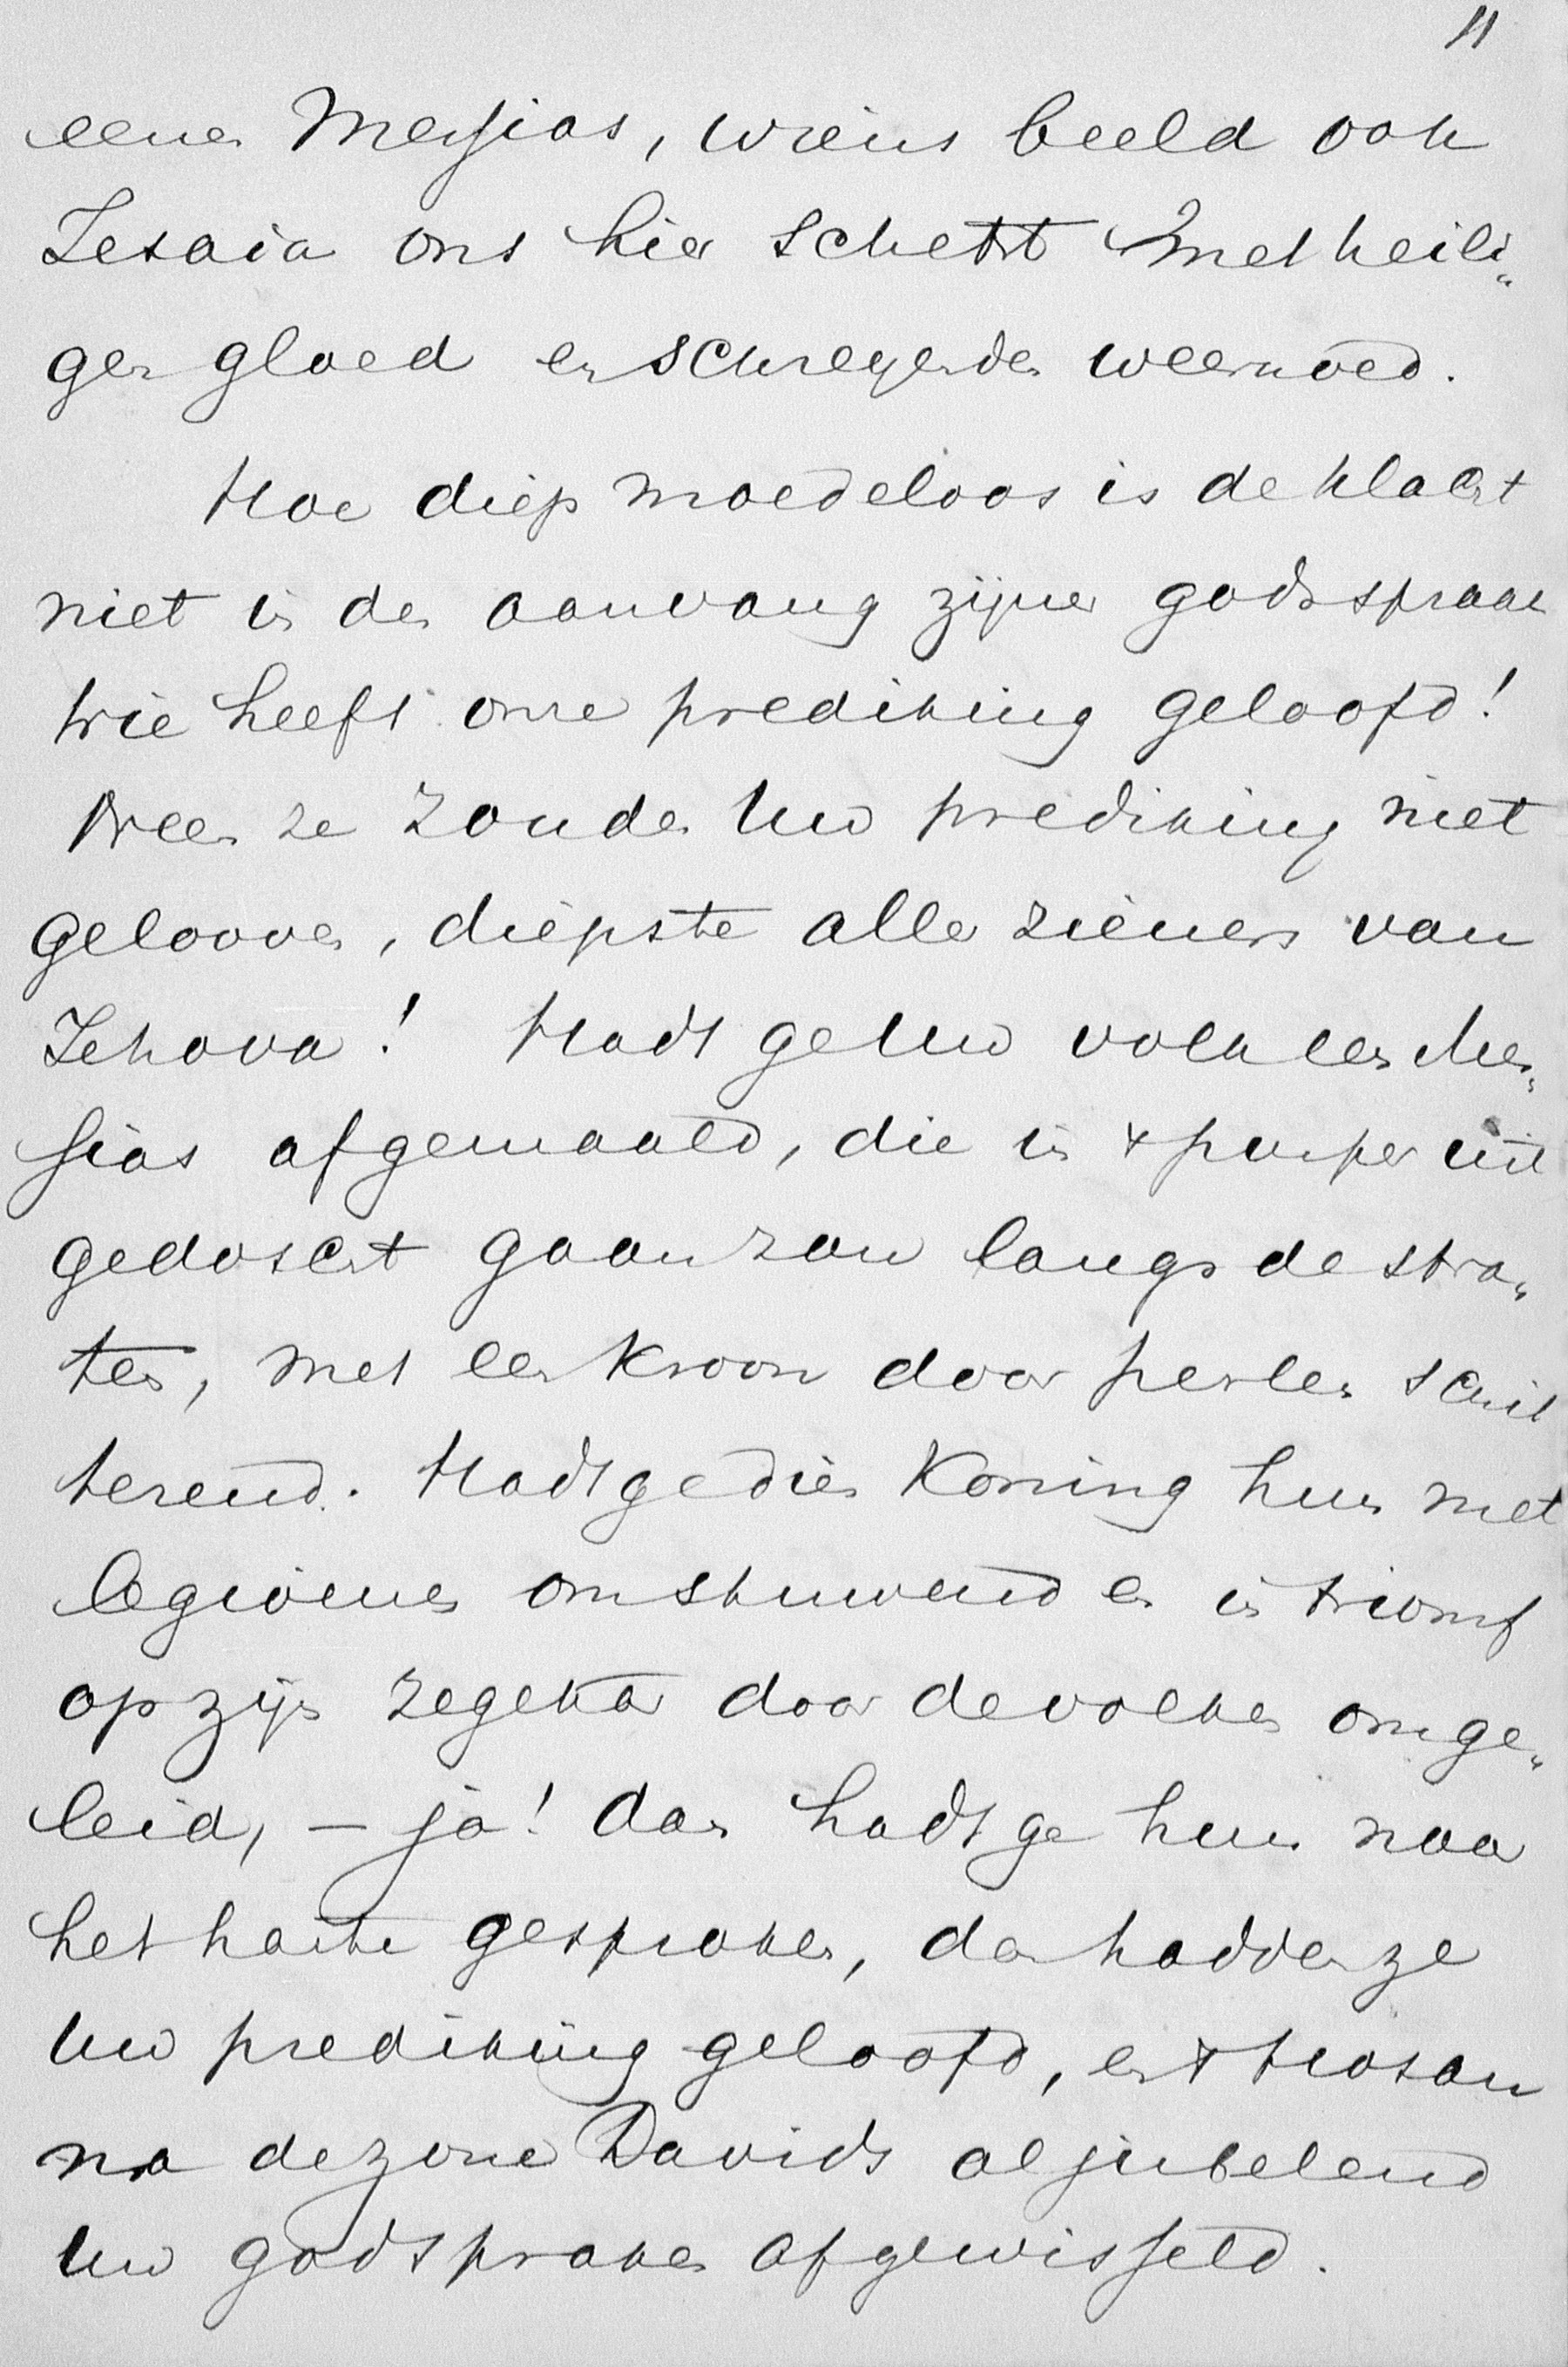 11
eenen Messias, wiens beeld ook
Jesaia ons hier schetst met heili„
gen gloed en schreyenden weemoed.
Hoe diep moedeloos is de klacht
niet in den aanvang zijner godsspraak
Wie heeft onze prediking geloofd!
Neen ze zouden Uw prediking niet
gelooven, diepste aller zieners van
Jehova! Hadt ge Uw volk een Mes„
sias afgemaald, die in 't purper uit
gedoscht gaan zou langs de stra„
ten, met een kroon door perlen schit
terend. Hadt ge dien Koning hun met
legioenen omstuwend en in triomf
op zijn zegekar door de volken omge„
leid, – ja! dan hadt ge hun naar
het harte gesproken, dan hadden ze
Uw prediking geloofd, en 't Hosan
na den zone Davids al jubelend
Uw godspraken afgewisseld.